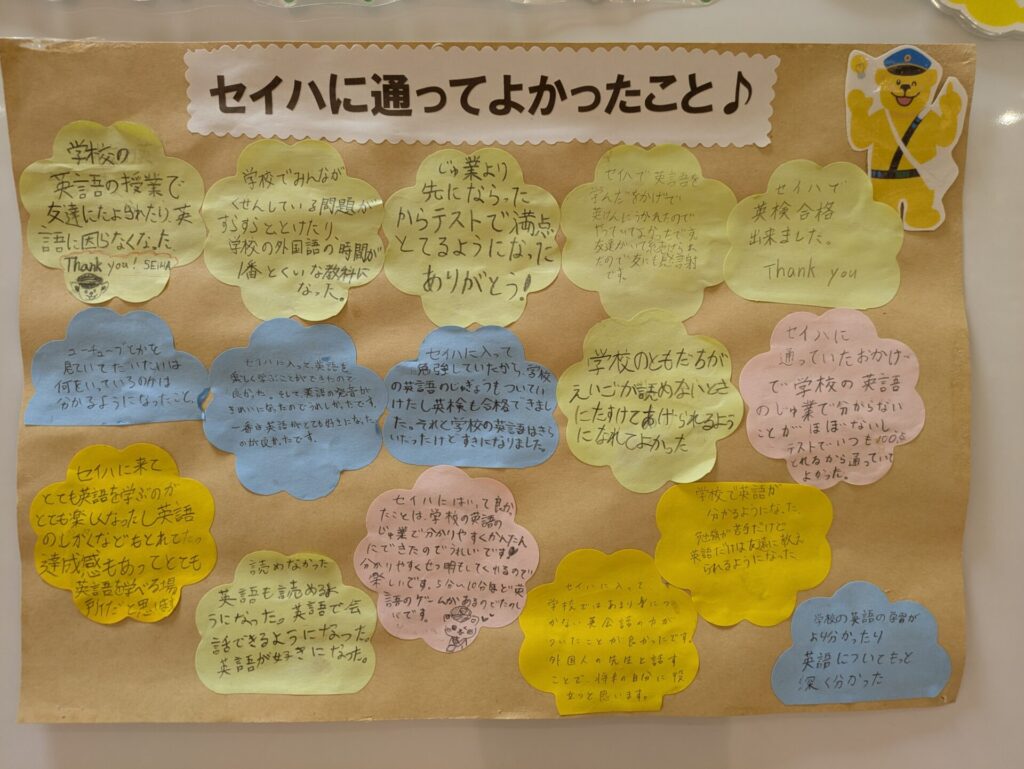 セイハに通ってよかったこと♪
学校の
英語の授業で
友達にたよられたり、英
語に困らなくなった
Thank you! SEIHA
学校でみんなが
くせんしている問題が
すらすらととけたり、
学校の外国語の時間が
1番とくいな教科に
なった。
じゅ業より
先にならった
からテストで満点
とてるようになった
ありがとう!
セイハで英語を
学んだおかげで
英検にうかれたので
やっていてよかったです。
友達がいて続けられ
たので友にも感謝
です。
セイハで
英検合格
出来ました。
Thank you
ユーチューブとかを
見ていてだいたいは
何をいっているのかは
分かるようになったこと。
セイハに入って、英語を
楽しく学ぶことができたので
良かった。そして、英語の発音が
きれいになったのでうれしかったです。
一番は英語がとても好きになった
のが良かったです。
セイハに入って
勉強していたから、学校
の英語のじゅぎょうもついてい
けたし英検も合格できまし
た。それと学校の英語はきら
いだったけどすきになりました。
学校のともだちが
えいごが読めないときに
にたすけてあげられるよう
になれてよかった
セイハに
通っていたおかげ
で学校の英語
のじゅ業で分からない
ことがほぼないし、
テストでいつも100点
とれるから通っていて
よかった。
セイハに来て
とても英語を学ぶのが
とても楽しくなったし英語
のしかくなどもとれて
達成感もあってとても
英語を学べる場
所だと思います
セイハにはいって良かっ
たことは、学校の英語の
じゅ業で分かりやすくかんたん
にできたのでうれしいです!
分かりやすくせつ明もしてくれるので
楽しいです。5分い10分ほど英
語のゲームがあるのでたのし
いです。
学校で英語が
分かるようになった
勉強が苦手だけど
英語だけは友達に教え
られるようになった
読めなかった
英語も読めるよ
うになった。英語で会
話できるようになった。
英語が好きになった。
セイハに入って
学校ではあまり身につ
かない英会話の力が
ついたことが良かったです。
外国人の先生と話す
ことで、将来の自分に役
立つと思います。
学校の英語の習が
より分かったり
英語についてもっと
深く分かった